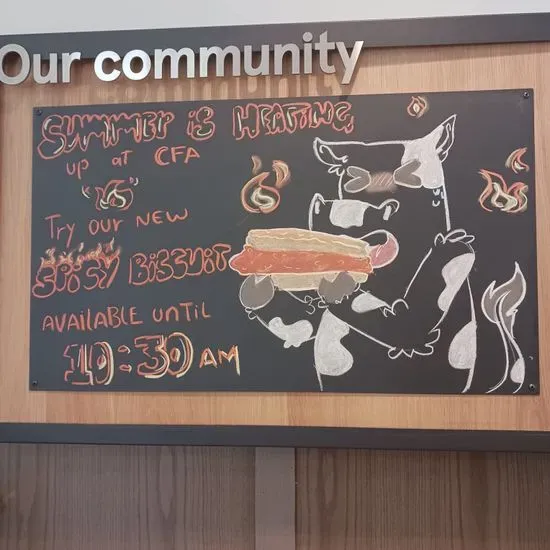 Our community
SUMMER iS HEATiNG
UP aT CFA
TrY our NEW
SPiCY BISCUIT
AVAILABLE UNTIL
10:30 AM